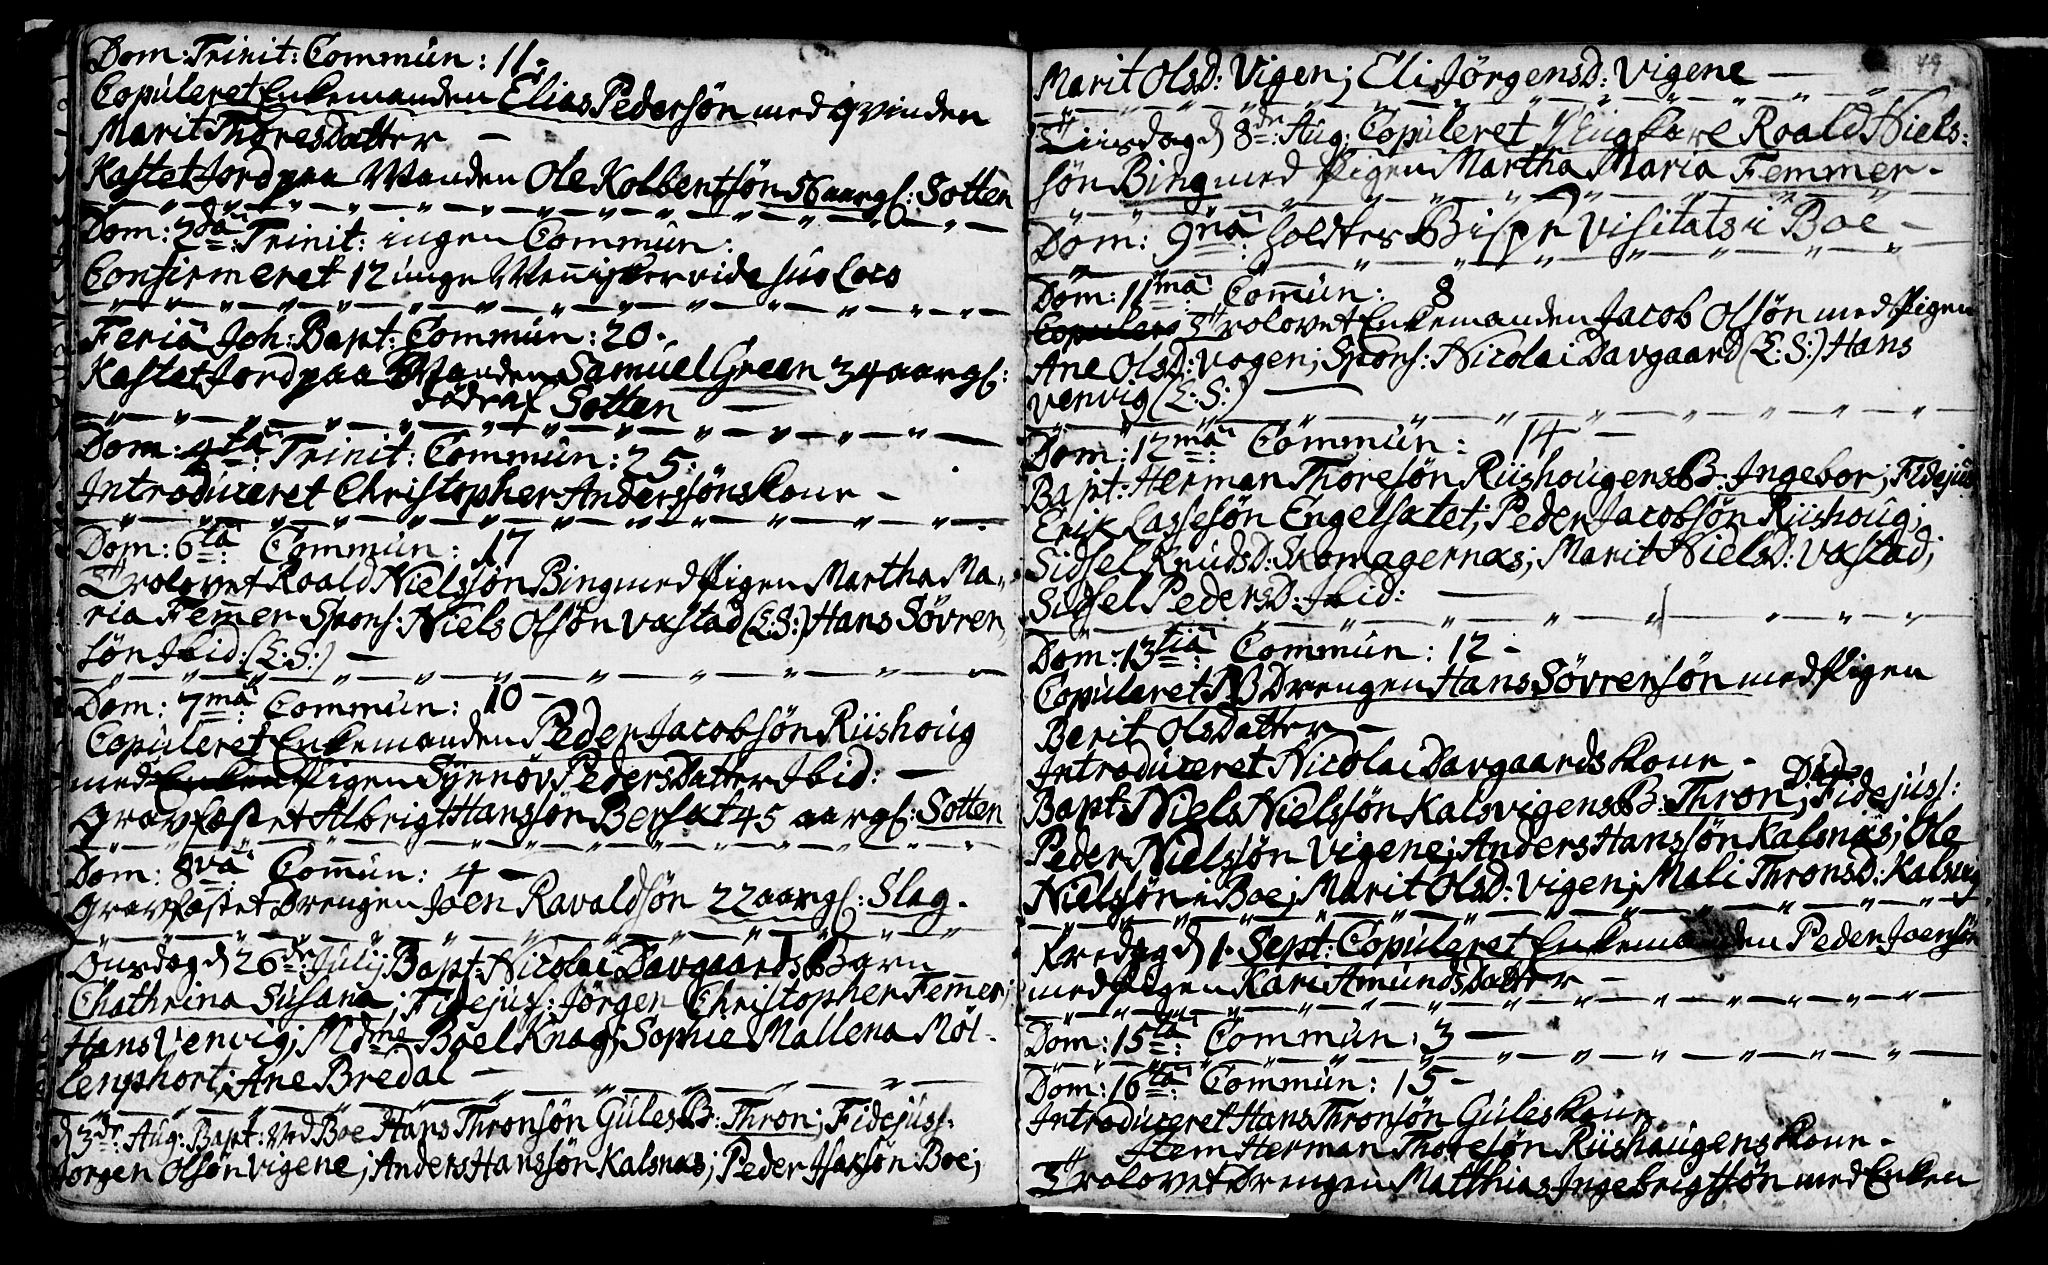 Dom: Trinit: Commun: 11.
Copuleret Enkemanden Elias Pedersøn med qvinden
Marit Thoresdatter —
Kastet Jord paa Manden Ole Kolbentsøn 56 aar gl: Sotten
Dom: 2da: Trinit: ingen Commun:
Confirmeret 12 unge Menisker vide suo loco
Feria Joh: Bapt: Commun: 20.
Kastet Jord paa Manden Samuel Green 34 aar gl:
død af Sotten —
Dom: 4ta: Trinit: Commun: 25.
Introduceret Christopher Anderssøns Kone —
Dom: 6ta: Commun: 17
Trolovet Roald Nielssøn Bing med Pigen Martha Ma-
ria Femer Spons: Niels Olsøn Vastad (L:S:) Hans Søvren
søn Ibid: (L:S:) —
Dom: 7ma: Commun: 10 —
Copuleret Enkemanden Peder Jacobsøn Riishoug
med Enken Pigen Synnøv Pedersdatter Ibid: —
Gravfæstet Albrigt Hanssøn Bersæt 45 aar gl: Sotten
Dom: 8va: Comun: 4 —
Gravfæstet Drengen Joen Ravaldsøn 22 aar gl: Slag.
Onsdag d 26de: Julij Bapt: Nicolai Davgaards Barn
Chathrina Susana; Fidejus: Jørgen Christopher Femer;
Hans Venvig; Mdme Boel Knag; Sophie Mallena Møl-
lenphort; Ane Bredal —
d 3de Aug: Bapt: Ved Boe Hans Thronsøn Gules B: Thron; Fidejus:
Jørgen Olsøn Vigene; Anders Hanssøn Kalsnas; Peder Isaksøn Boe;
49
Marit Olsd: Vigen; Eli Jørgensd: Vigene —
Tiirsdag d 8de: Aug: Copuleret Ungkarl Roald Niels:
søn Bing med Pigen Martha Maria Femmer —
Dom: 9na: holdtes Bispe Visitats i Boe —
Dom: 11ma: Comun: 8
Copuler Trolovet Enkemanden Jacob Olsøn med Pigen
Ane Olsd: Vogen; Spons: Nicolai Davgaard (L:S:) Hans
Venvig (L:S:) —
Dom: 12ma: Commun: 14 —
Bapt: Herman Thoresøn Riishougens B: Ingebor; Fidejus:
Erik Lassesøn Engelsætet; Peder Jacobsøn Riishoug;
Sidsel Knudsd: Skomagernæs; Marit Nielsd: Vastad;
Sidsel Pedersd: Ibid: —
Dom: 13tia: Commun: 12 —
Copuleret NB Drengen Hans Søvrensøn med Pigen
Berit Olsdatter —
Introduceret Nicolai Davgaards Kone —
Bapt: Niels Nielssøn Kalsvigens B: Thron; Fidejus:
Peder Nielssøn Vigene; Anders Hanssøn Kalsnæs; Ole
Nielssøn i Boe; Marit Olsd: Vigen; Mali Thronsd: Kalsvig
Fredag d 1. Sept: Copuleret Enkemanden Peder Joensøn
med Pigen Kari Amundsdatter —
Dom: 15ta: Commun: 3 —
Dom: 16ta: Commun: 15 —
Introduceret Hans Thronsøn Gules Kone
Item Herman Thoresøn Riishaugens Kone —
Trolovet Drengen Matthias Ingebrigtsøn med Enken